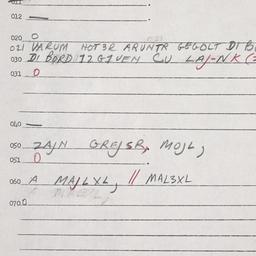 011
012 —
020 O
021 WARUM HOT3R ARUNTR GEGOLT DI B
030 DI BORD 12 G1VEN CU LAJ-NK (2
031 O
040 —
050 ZAJN GREJSR, MOJL,
051 O
060 A MAJLXL, // MAL3XL
070.0